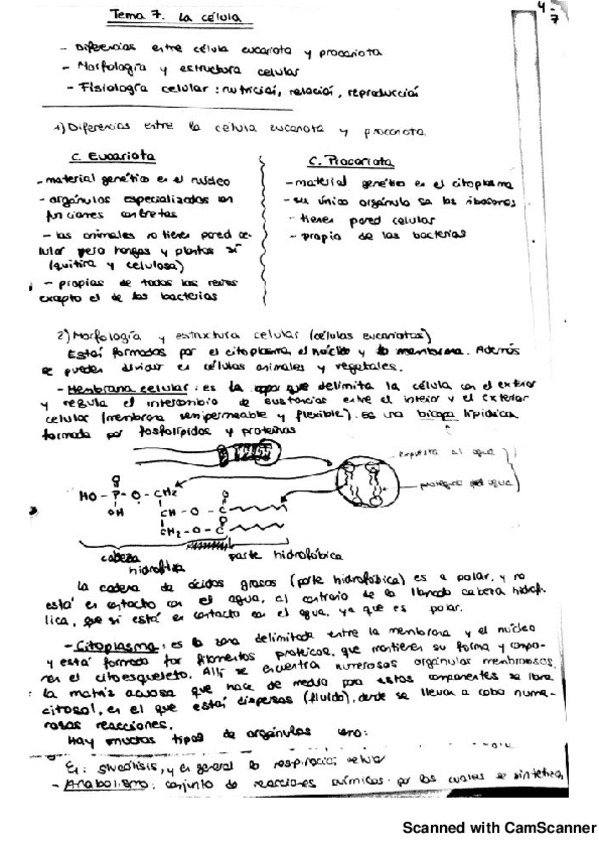 Tema 7. La célula
4-7
- Diferencias entre célula eucariota y procariota
- Morfología y estructura celular
- Fisiología celular: nutrición, relación, reproducción
1) Diferencias entre la célula eucariota y procariota
C. Eucariota
- material genético en el núcleo
- orgánulos especializados en
funciones concretas
- las animales no tienen pared ce-
lular pero hongos y plantas sí
(quitina y celulosa)
- propias de todos los reinos
excepto el de las bacterias
C. Procariota
- material genético en el citoplasma
- su único orgánulo son los ribosomas
- tienen pared celular
- propia de las bacterias
2) Morfología y estructura celular (células eucariotas)
Están formadas por el citoplasma, el núcleo y la membrana. Además
se pueden dividir en células animales y vegetales.
- Membrana celular: es la capa que delimita la célula con el exterior
y regula el intercambio de sustancias entre el interior y el exterior
celular (membrana semipermeable y flexible). Es una bicapa lipídica
formada por fosfolípidos y proteínas
expuesta al agua
protegida del agua
HO - P - O - CH2
O
OH
CH - O - C
O
CH2 - O - C
O
cabeza
hidrofílica
parte hidrofóbica
La cadena de ácidos grasos (parte hidrofóbica) es apolar, y no
está en contacto con el agua, al contrario de la llamada cabeza hidrofí-
lica, que sí está en contacto con el agua, ya que es polar.
- Citoplasma: es la zona delimitada entre la membrana y el núcleo
y está formada por filamentos proteicos, que mantienen su forma y compo-
nen el citoesqueleto. Allí se encuentra numerosos orgánulos membranosos,
la matriz acuosa que hace de medio para estos componentes se llama
citosol, en el que están dispersas (fluido), donde se llevan a cabo nume-
rosas reacciones.
Hay muchos tipos de orgánulos como:
Ej: glucólisis, y en general la respiración celular
- Anabolismo: conjunto de reacciones químicas por las cuales se sintetiza
Scanned with CamScanner